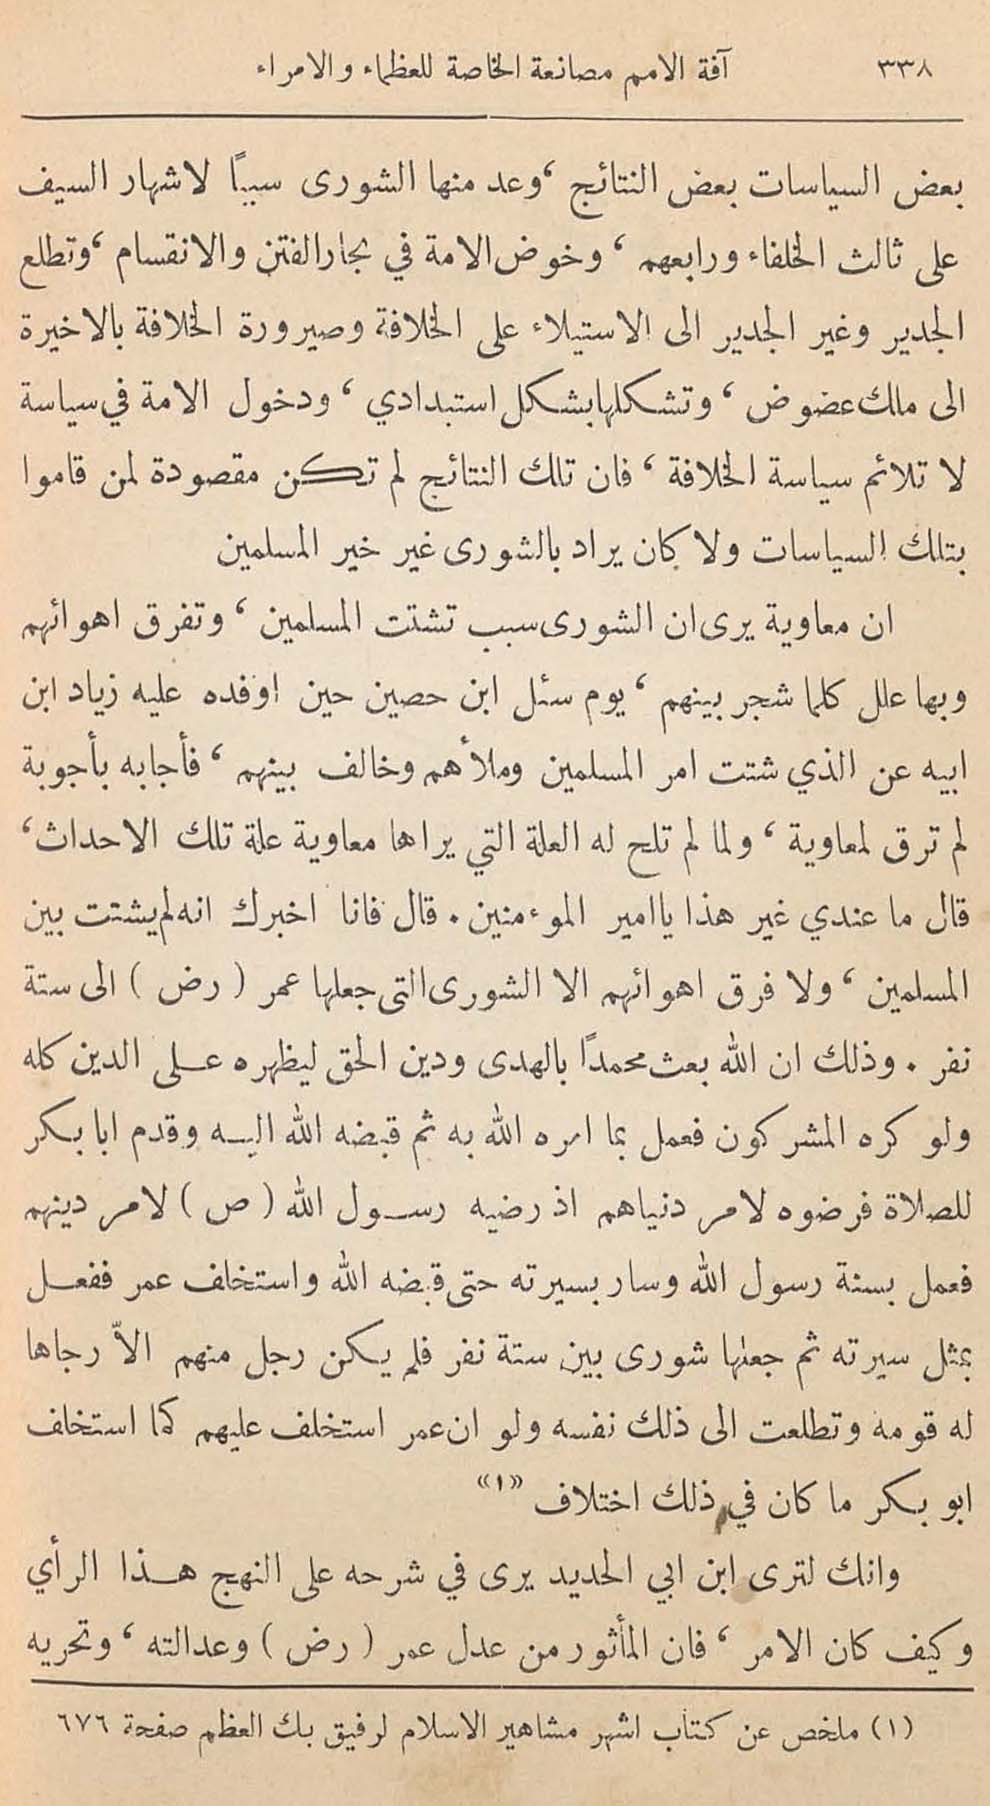 ٣٣٨
آفة الامم مصانعة الخاصة للعظماء والامراء
بعض السياسات بعض النتائج ، وعد منها الشورى سبباً لاشهار السيف
على ثالث الخلفاء ورابعهم ، وخوض الامة في بحار الفتن والانقسام ، وتطلع
الجدير وغير الجدير الى الاستيلاء على الخلافة وصيرورة الخلافة بالاخيرة
الى مالك عضوض ، وتشكلها بشكل استبدادي ، ودخول الامة في سياسة
لا تلائم سياسة الخلافة ، فان تلك النتائج لم تكن مقصودة لمن قاموا
بتلك السياسات ولا كان يراد بالشورى غير خير المسلمين
ان معاوية يرى ان الشورى سبب تشتت المسلمين ، وتفرق اهوائهم
وبها علل كلما شجر بينهم ، يوم سئل ابن حصين حين اوفده عليه زياد ابن
ابيه عن الذي شتت امر المسلمين وملأهم وخالف بينهم ، فأجابه بأجوبة
لم ترق لمعاوية ، ولما لم تلح له العلة التي يراها معاوية علة تلك الاحداث ،
قال ما عندي غير هذا يا امير الموءمنين . قال فانا اخبرك انه لم يشتت بين
المسلمين ، ولا فرق اهوائهم الا الشورى التي جعلها عمر ( رض ) الى ستة
نفر . وذلك ان الله بعث محمداً بالهدى ودين الحق ليظهره على الدين كله
ولو كره المشركون فعمل بما امره الله به ثم قبضه الله اليه وقدم ابا بكر
للصلاة فرضوه لامر دنياهم اذ رضيه رسول الله ( ص ) لامر دينهم
فعمل بسنة رسول الله وسار بسيرته حتى قبضه الله واستخلف عمر ففعل
بمثل سيرته ثم جعلها شورى بين ستة نفر فلم يكن رجل منهم الاّ رجاها
له قومه وتطلعت الى ذلك نفسه ولو ان عمر استخلف عليهم كما استخلف
ابو بكر ما كان في ذلك اختلاف «١»
وانك لترى ابن ابي الحديد يرى في شرحه على النهج هذا الرأي
وكيف كان الامر ، فان المأثور من عدل عمر ( رض ) وعدالته ، وتحريه
(١) ملخص عن كتاب اشهر مشاهير الاسلام لرفيق بك العظم صفحة ٦٧٦